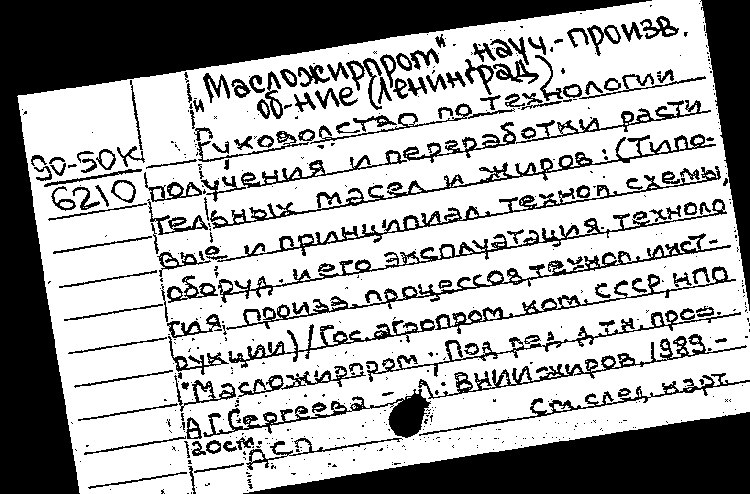 "Масложирпром" науч.-произв.
об-ние (Ленинград).
Руководство по технологии
90-50К
6210
получения и переработки расти
тельных масел и жиров: (Типо-
вые и принципиал. технол. схемы,
оборуд. и его эксплуатация, техноло
гия произв. процессов, технол. инст-
рукции) / Гос. агропром. ком. СССР, НПО
"Масложирпром"; Под ред. д.т.н. проф.
А.Г. Сергеева. - Л.: ВНИИжиров, 1989. -
20см.
ДСП. См. след. карт.